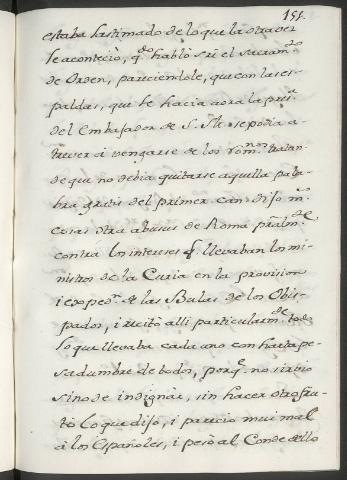 151.
estaba lastimado de lo que la otra vez
le acontecio, q.do habló sre el sacram.to
de Orden, pareciendole, que con las es-
paldas, que le hacia aora la pres.a
del Embajador de S. M. se podia a-
trever á vengarse de los rom.nos tratan-
de que no debia quitarse aquella pala-
bra gratis del primer can: dijo m.s
cosas otra abusus de Roma pralm.te
contra los intereses q. llevaban los mi-
nistros de la Curia en la provision
i exped.n de las Bulas de los Obis-
pados, i recitó alli particularm.te todo
lo que llevaba cada uno con harta pe-
sadumbre de todos, porq.e no sirvio
sino de indignar, sin hacer otro fru-
to lo que dijo, i parecio mui mal
á los Españoles, i pesó al Conde dello